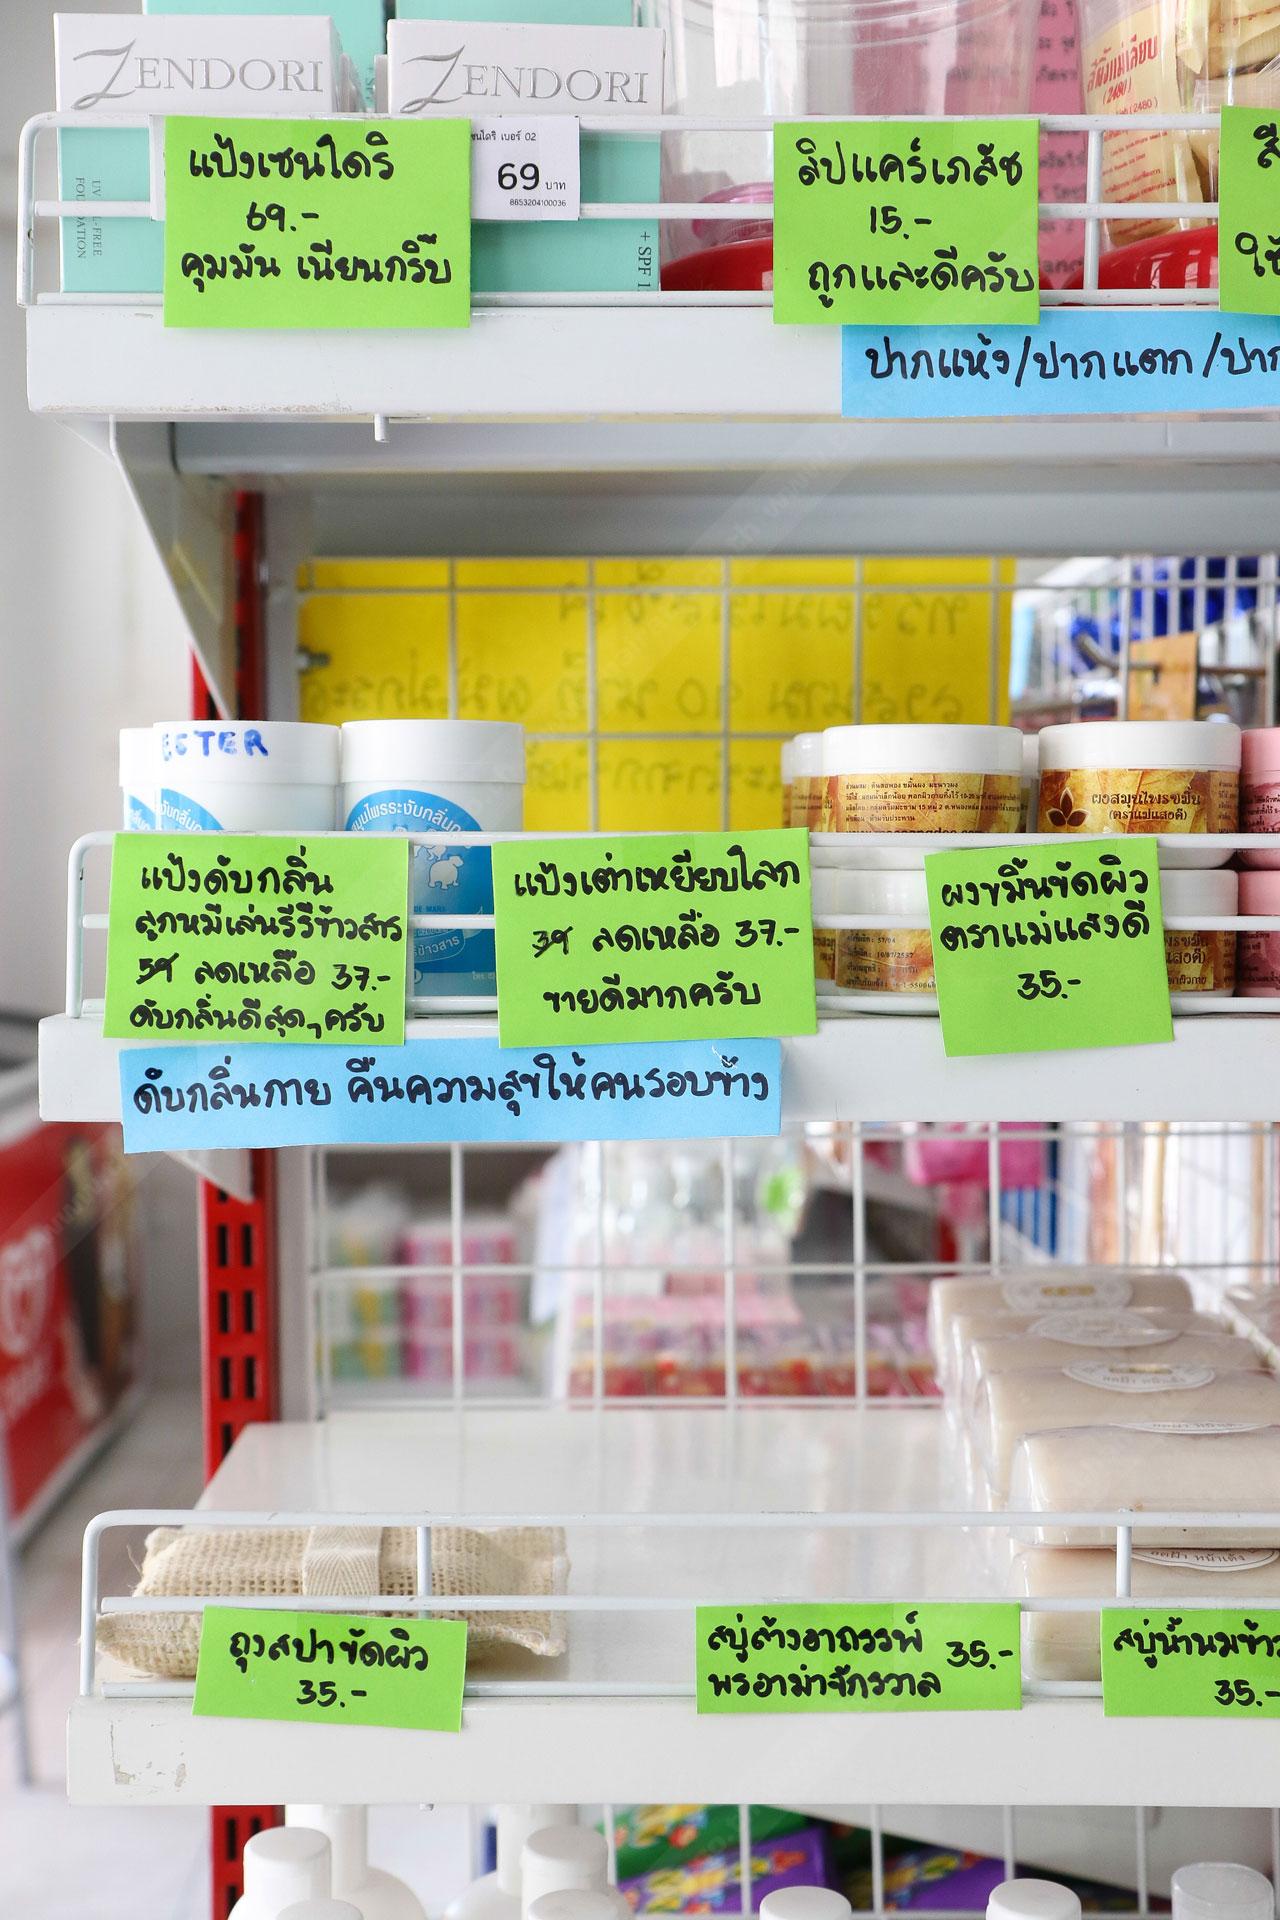 ZENDORI
ZENDORI
UV
FOUNDATION
+ SPF
เบอร์ 02
69 บาท
8853204100036
แป้งเซนโดริ
69.-
คุมมัน เนียนกริ๊บ
ลิปแคร์เภสัช
15.-
ถูกและดีครับ
(2480)
ปากแห้ง/ปากแตก/ปาก
ESTER
แป้งดับกลิ่น
ลูกหมีเล่นรีรีข้าวสาร
59 ลดเหลือ 37.-
ดับกลิ่นดีสุดๆครับ
แป้งเต่าเหยียบโลก
39 ลดเหลือ 37.-
ขายดีมากครับ
ผงสมุนไพรขมิ้น
(ตราแม่แสงดี)
ผงขมิ้นขัดผิว
ตราแม่แสงดี
35.-
ดับกลิ่นกาย คืนความสุขให้คนรอบข้าง
ถุงสปาขัดผิว
35.-
สบู่ล้างอาถรรพ์ 35.-
พรอาม่าจักรวาล
ลดฝ้า หน้าเด้ง
สบู่น้ำนมข้าว
35.-